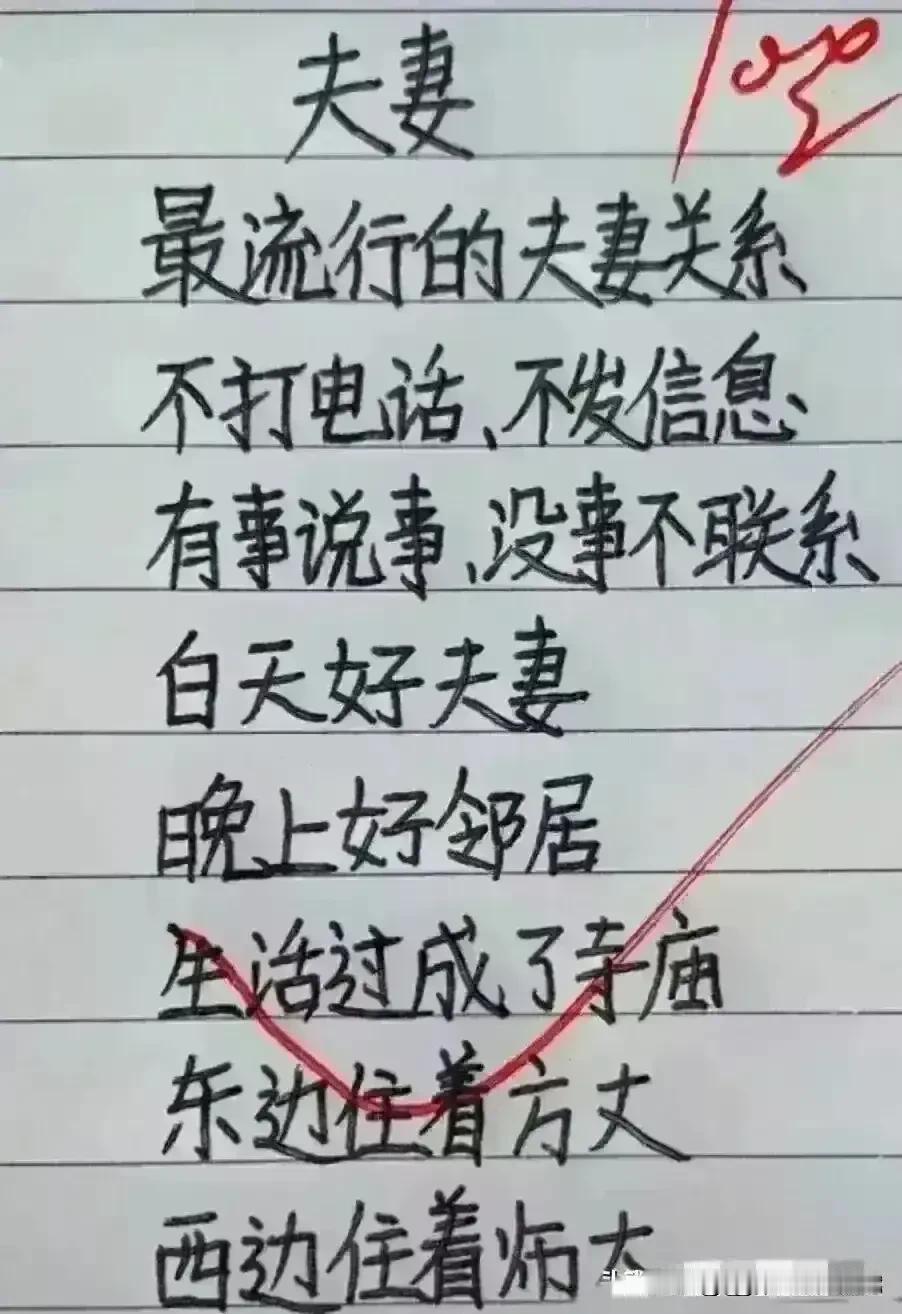 夫妻
100
最流行的夫妻关系
不打电话、不发信息、
有事说事、没事不联系
白天好夫妻
晚上好邻居
生活过成了寺庙
东边住着方丈
西边住着师太